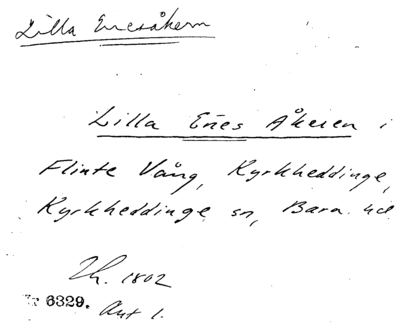 Lilla Ericsåkern
Lilla Erics Åkeren i
Flinte Vång, Kyrkheddinge,
Kyrkheddinge sn, Bara hd
1802
6329. Akt 1.